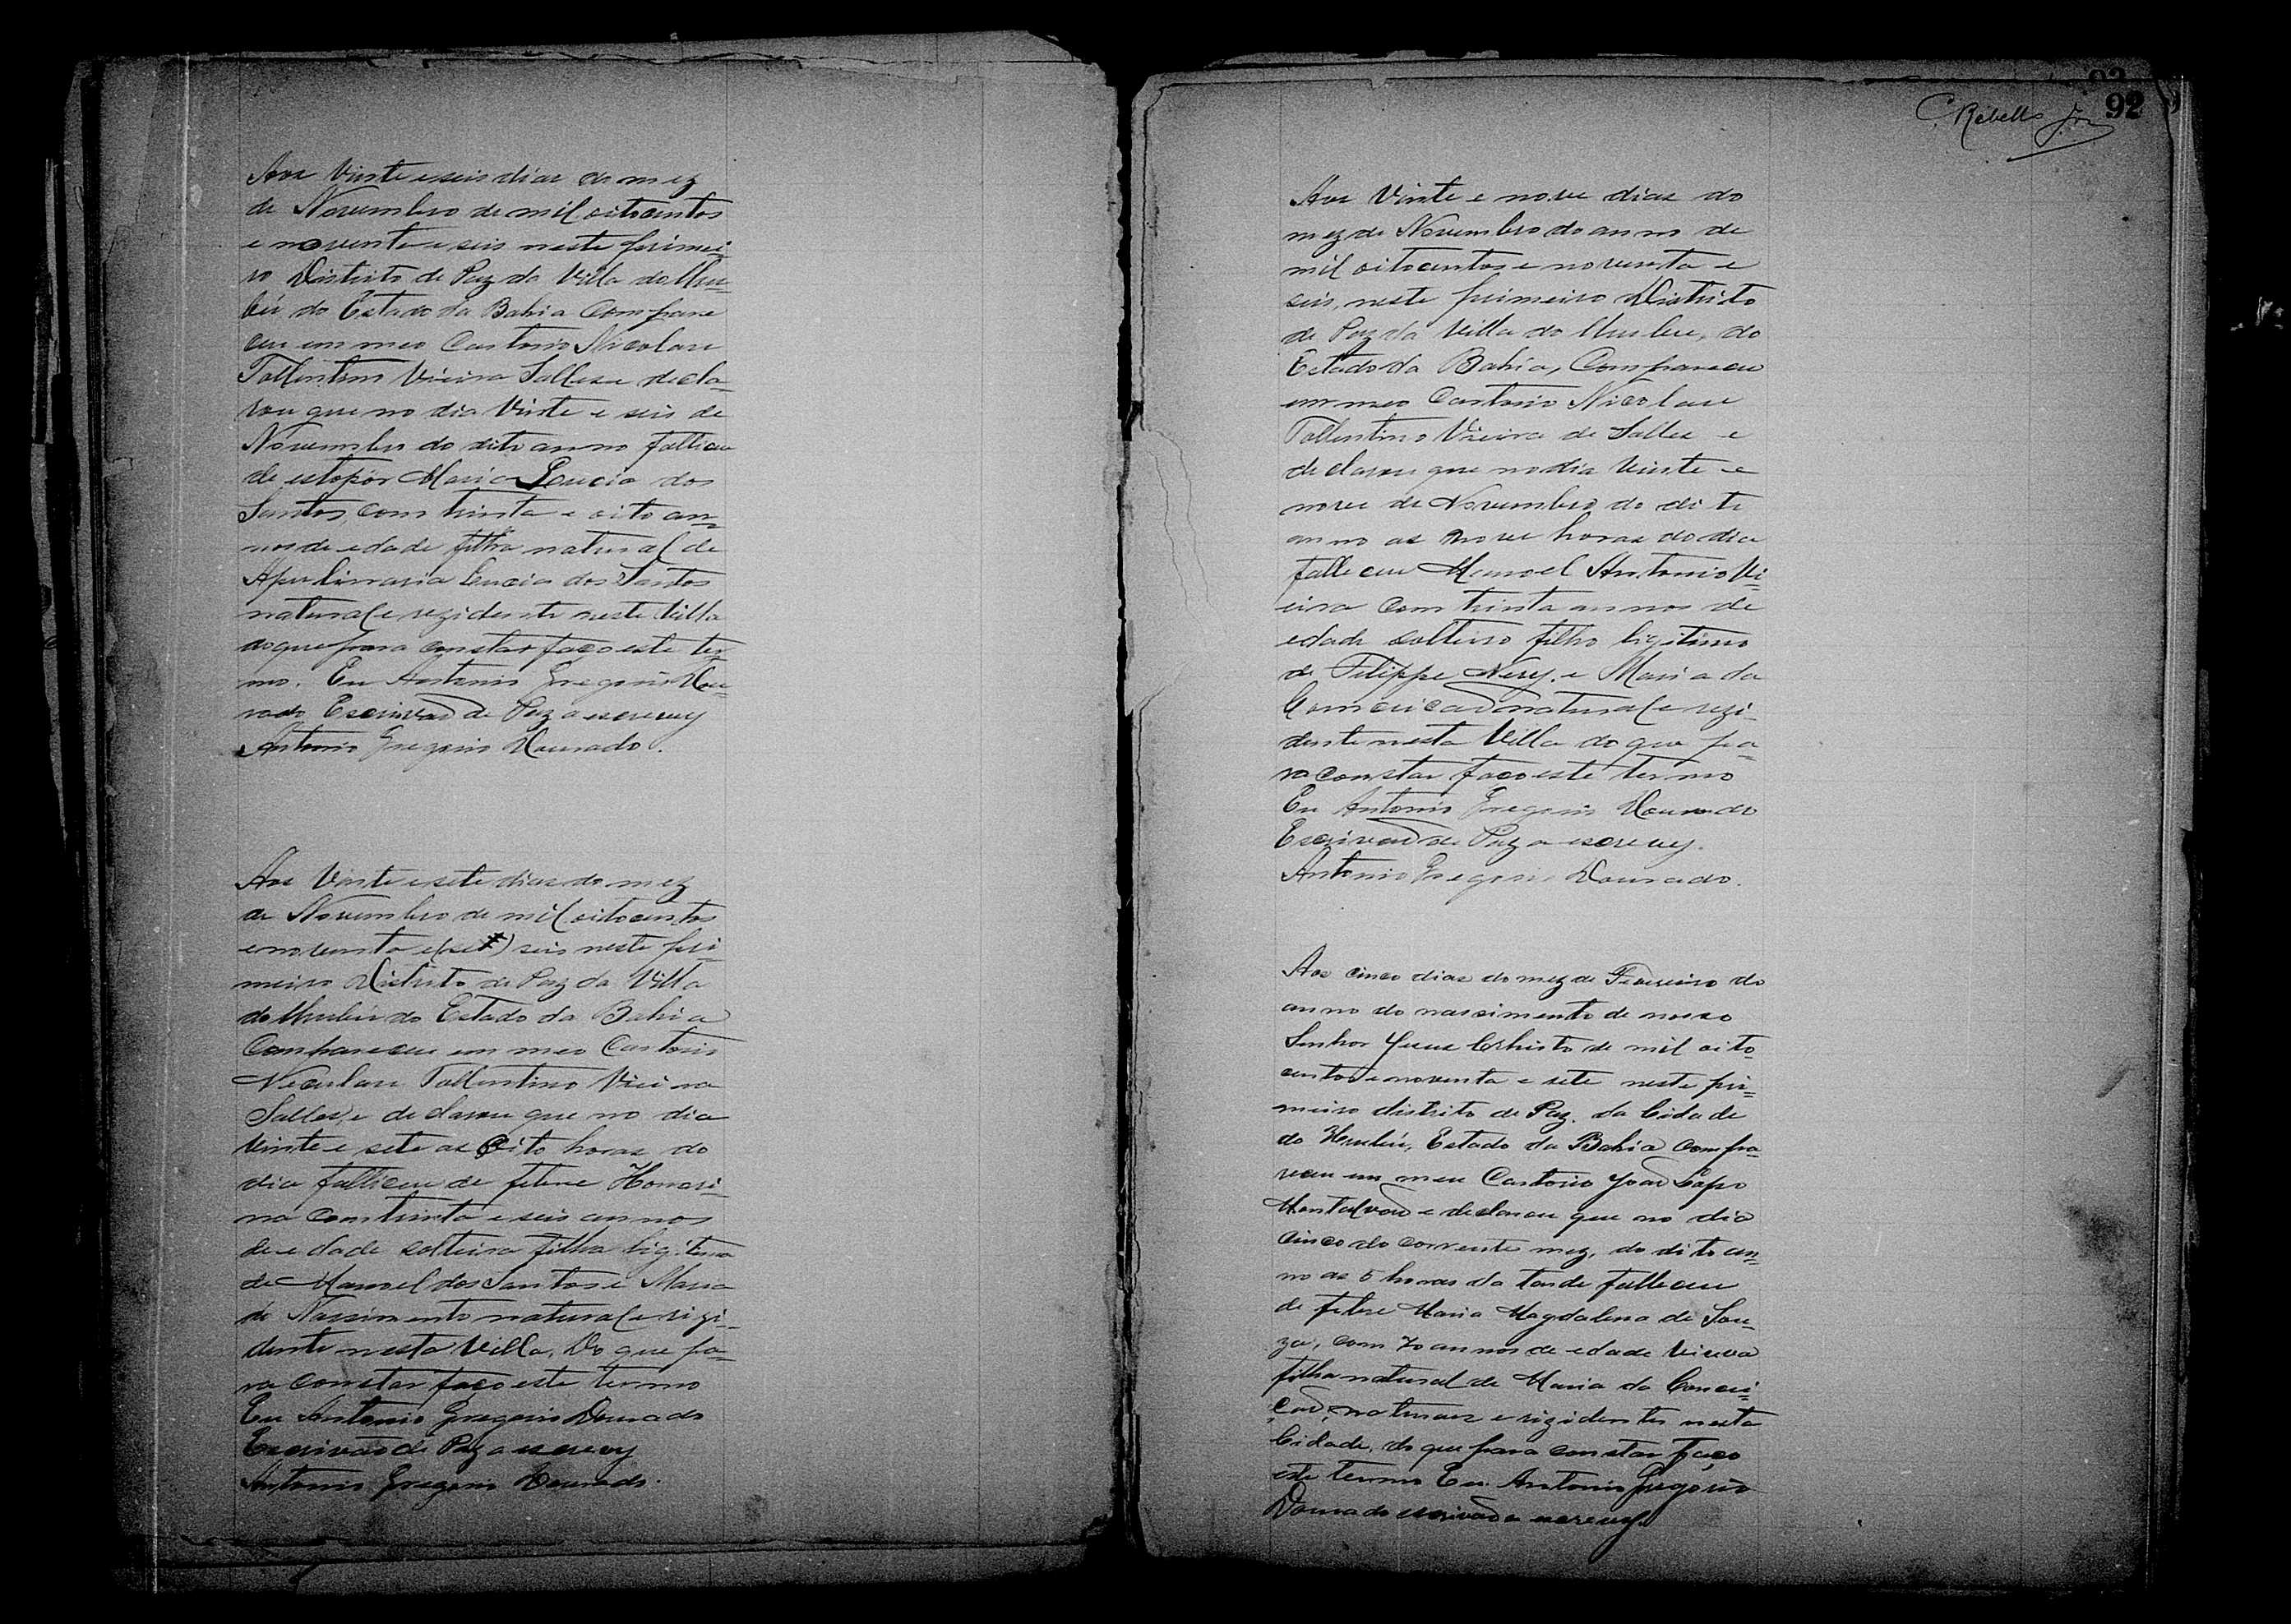 Aos Vinte e seis dias do mez
de Novembro de mil oitocentos
e noventa e seis neste primei-
ro Districto de Paz da Villa do Uru-
bú do Estado da Bahia Compare
ceu em meo Cartorio Nicolau
Tollentino Vieira Salles e decla-
rou que no dia Vinte e seis de
Novembro do dito anno falleceu
de estopôr Maria Lucia dos
Santos, com trinta e oito an-
nos de edade filha natural de
Apulinnaria Lucia dos Santos
natural e rezidente nesta Villa
do que para constar faço este ter
mo. Eu Antonio Gregorio Dou-
rado Escrivaõ de Paz a escrevy
Antonio Gregorio Dourado.
Aos Vinte e sete dias do mez
de Novembro de mil oitocentos
e noventa e (set) seis neste pri-
meiro Districto de Paz da Villa
do Urubú do Estado da Bahia
Compareceu em meo Cartorio
Niculau Tollentino Vieira
Salles, e declarou que no dia
vinte e sete as Oito horas do
dia falleceu de febre Honori-
na com trinta e seis annos
de edade solteira filha ligitima
de Manoel dos Santos e Maria
do Nascimento natural e rizi-
dente nesta Villa, Do que pa-
ra constar faço este termo
Eu Antonio Gregorio Dourado
Escrivaõ de Paz a escrevy
Antonio Gregorio Dourado.
92
C. Rebello Jor
Aos Vinte e nove dias do
mez de Novembro do anno de
mil oitocentos e noventa e
seis, neste primeiro Districto
de Paz da Villa do Urubu, do
Estado da Bahia, Compareceu
em meo Cartorio Nicolau
Tollentino Vieira de Salles e
declarou que no dia vinte e
nove de Novembro do dito
anno as nove horas do dia
falleceu Manoel Antonio Vi-
eira com trinta annos de
edade solteiro filho ligitimo
de Filippe Nery, e Maria da
Conceicaõ natural e rezi-
dente nesta Villa do que pa-
ra constar faço este termo
Eu Antonio Gregorio Dourado
Escrivaõ de Paz a escrevy.
Antonio Gregorio Dourado.
Aos cinco dias do mez de Fevereiro do
anno do nascimento de nosso
Senhor Jesus Christo de mil oito
centos e noventa e sete neste pri-
meiro districto de Paz. da Cidade
do Urubú, Estado da Bahia compa-
receu em meu Cartorio Joaõ
Montalvaõ e declarou que no dia
cinco do corrente mez, do dito an-
no as 5 horas da tarde falleceu
de febre Maria Magdalena de Sou-
za, com 70 annos de edade viuva
filha natural de Maria da Concei-
çaõ, naturaes e rizidentes nesta
Cidade, do que para constar faço
este termo Eu Antonio Gregorio
Dourado escrivaõ a escrevy.